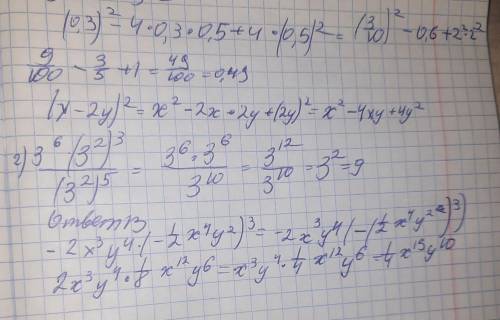 (0,3)² - 4·0,3·0,5 + 4·(0,5)² = (3/10)² - 0,6 + 2²·2²
9/100 - 3/5 + 1 = 49/100 = 0,49
(x - 2y)² = x² - 2x·2y + (2y)² = x² - 4xy + 4y²
2) 3⁶(3²)³/(3²)⁵ = 3⁶·3⁶/3¹⁰ = 3¹²/3¹⁰ = 3² = 9
Ответ
-2x³y⁴·(-½x⁴y²)³ = -2x³y⁴(-(½x⁴y²)³)
2x³y⁴·⅛x¹²y⁶ = x³y⁴·¼x¹²y⁶ = ¼x¹⁵y¹⁰